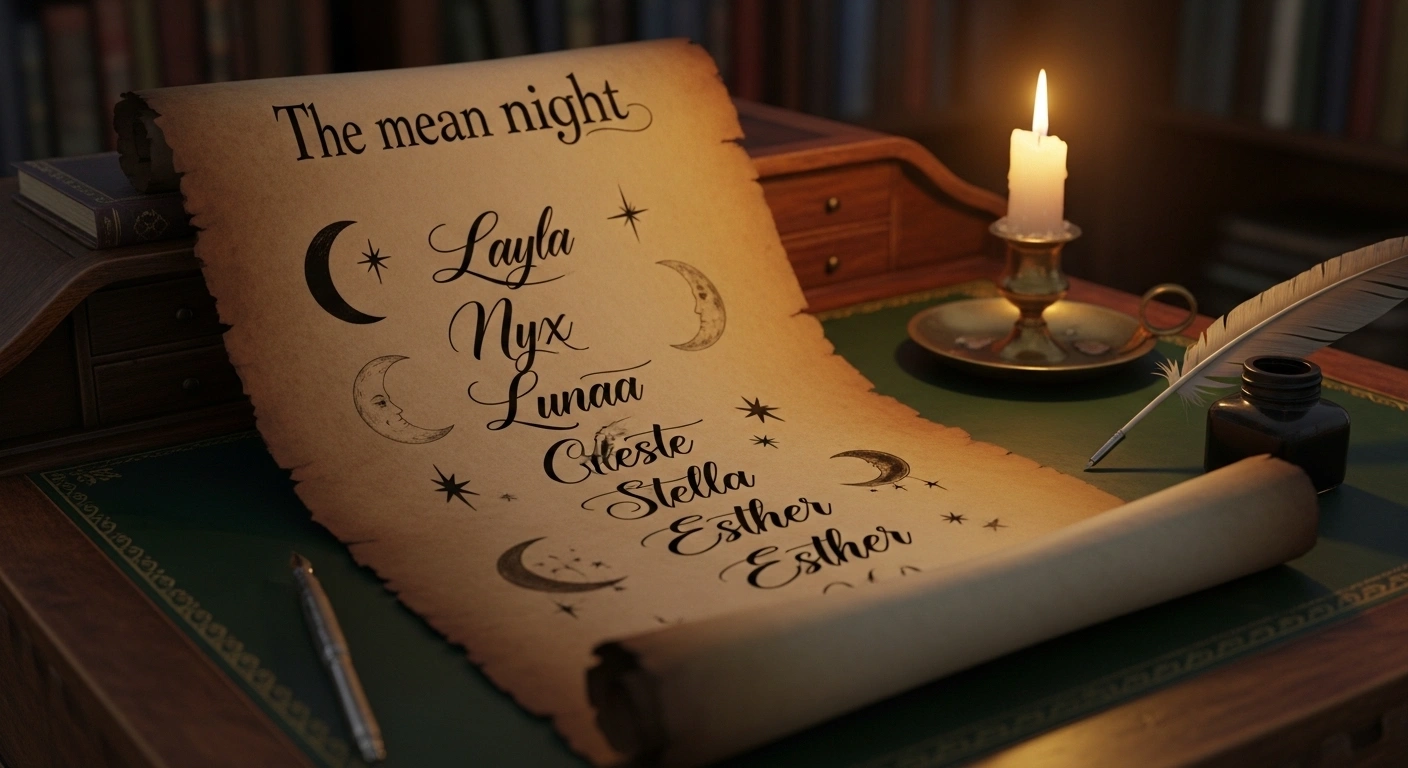 The mean night
Layla
Nyx
Lunaa
Stella
Esther
Esther